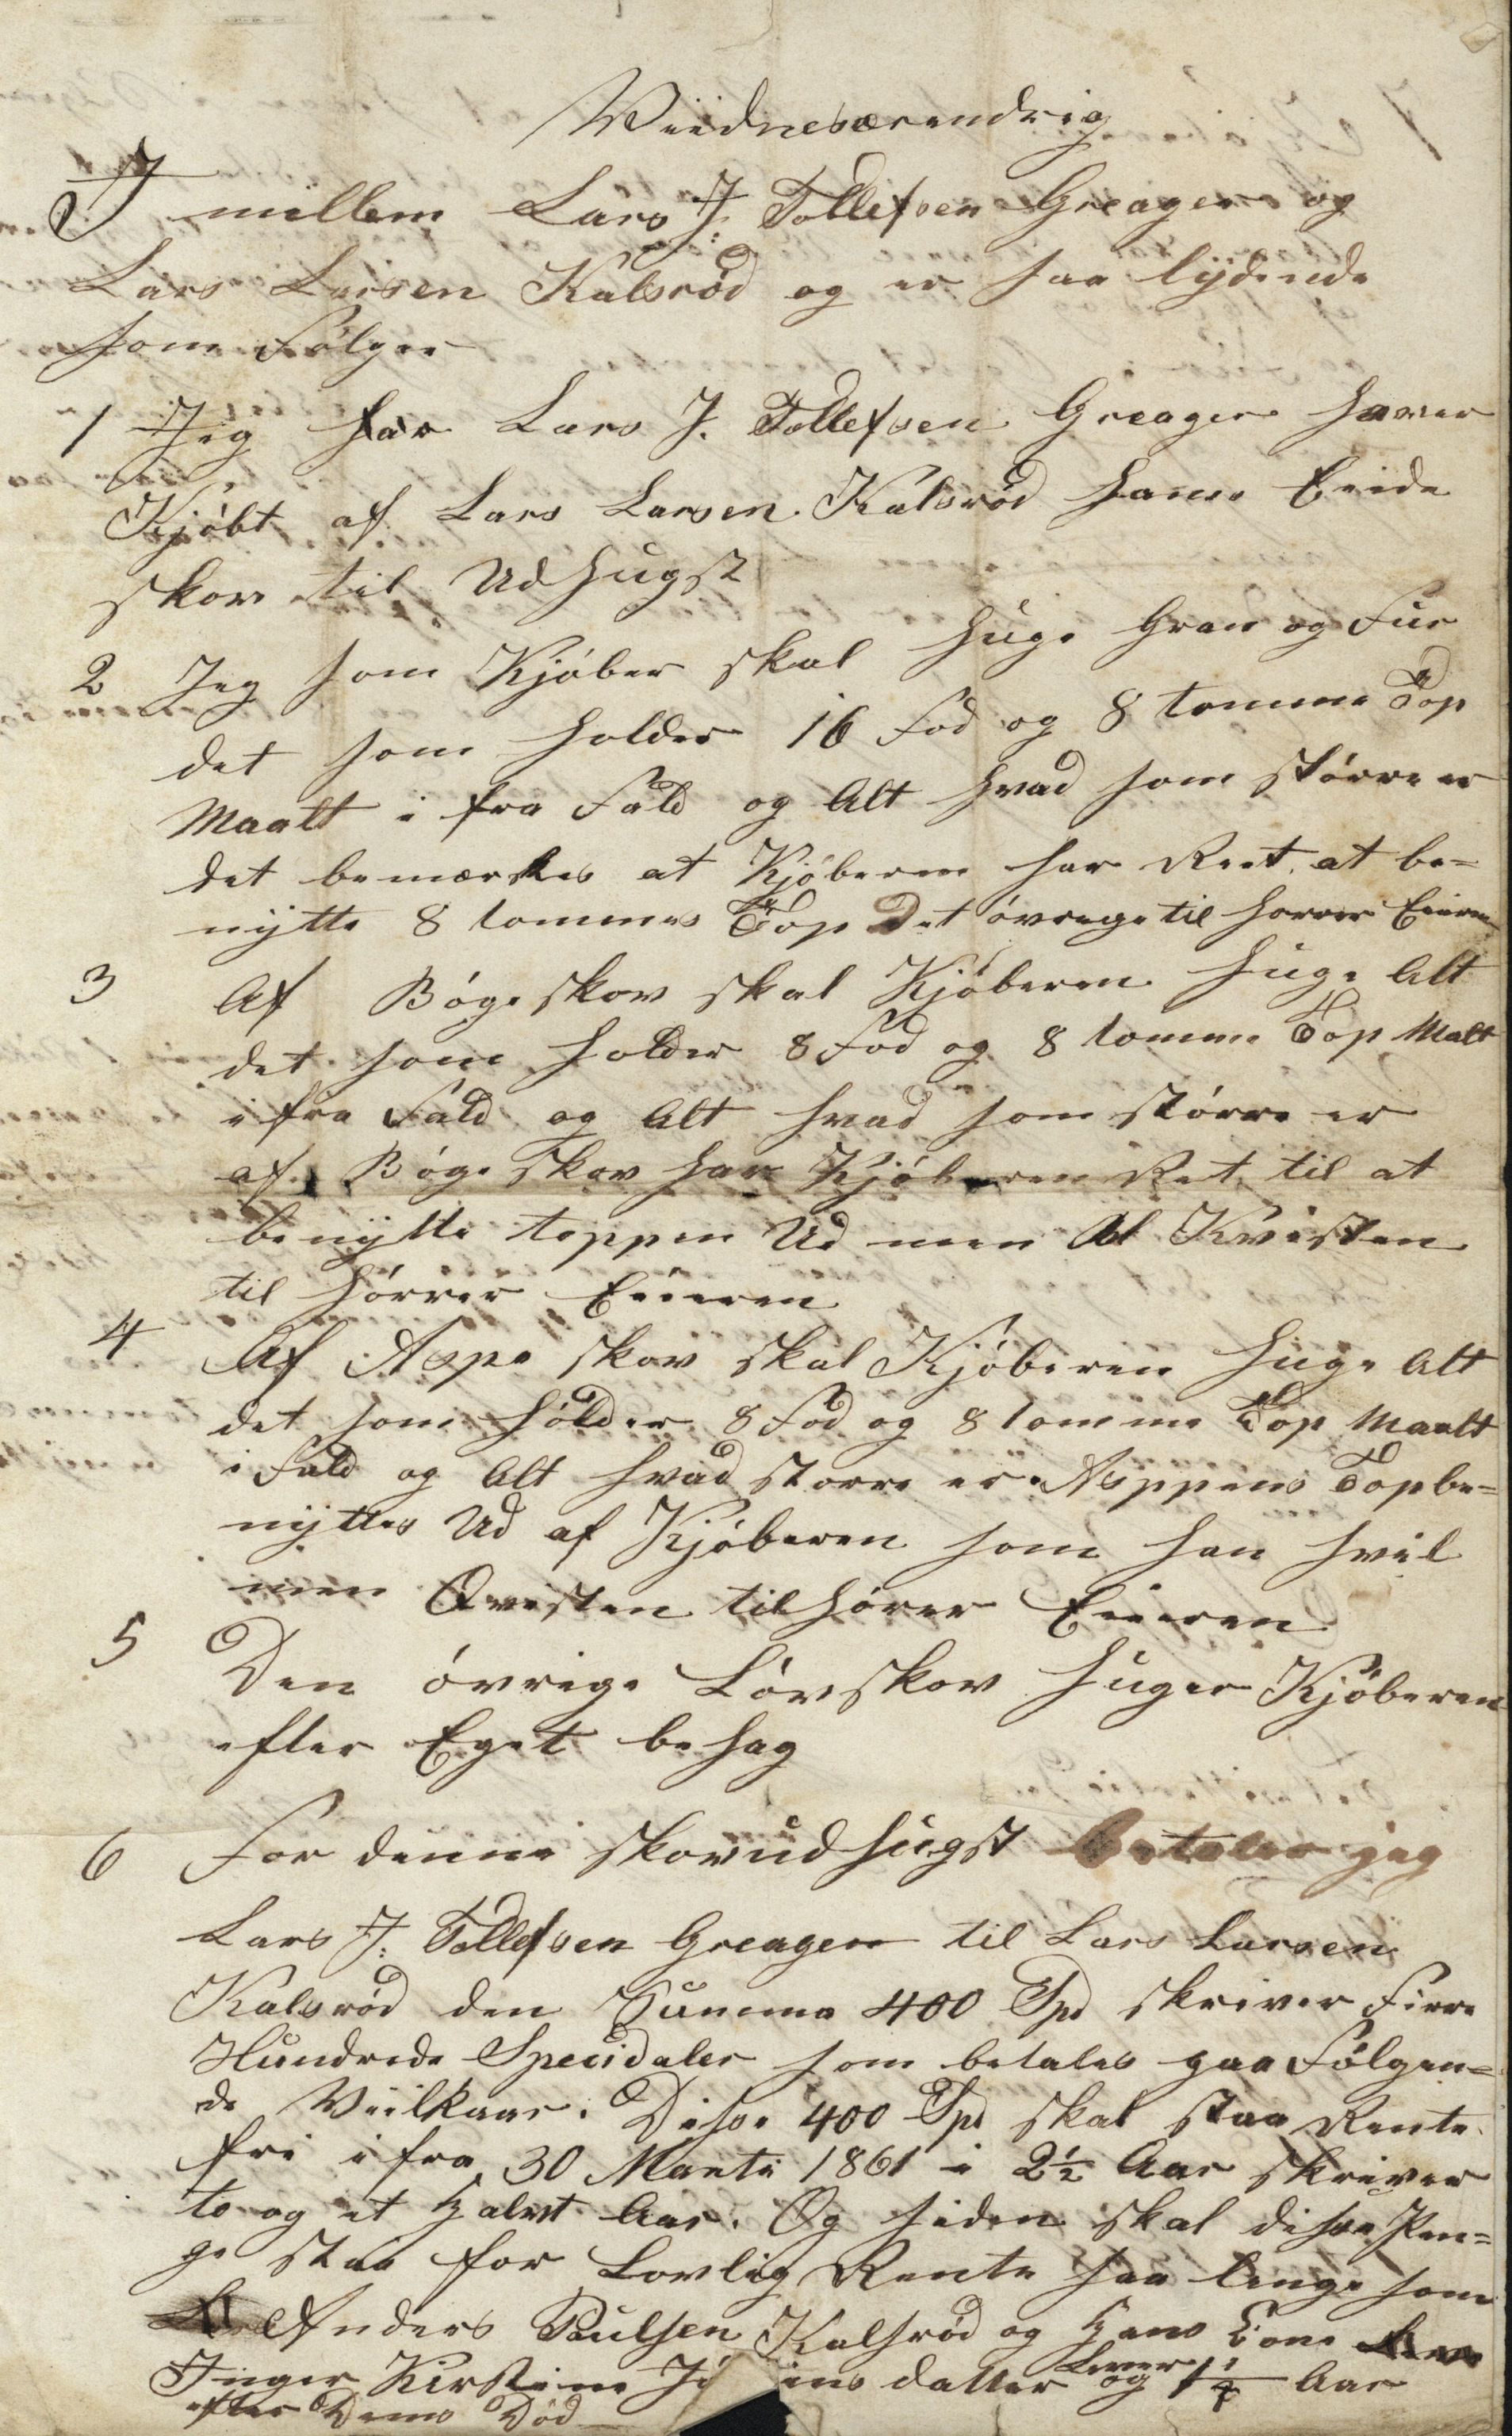 Viidnesværendrig
I mellem Lars J: Tollefsen Greager og
Lars Larsen Kalsrød og er saa lÿdende
som Følger
1 Jeg har Lars J. Tollefsen Greager haver
Kjøbt af Lars Larsen Kalsrød hans Eiede
skov til Udhugst
2 Jeg som Kjøber skal huge Gran og Fur
det som holder 16 Fod og 8 tomme Top
Maalt i fra Fald og Alt hvad som større er
det bemærkes at Kjøberen har Reet at be=
nÿtte 8 tommes Top Det øvrege til hører Eieren
3 Af Bøge skov skal Kjøberen huge Alt
det som holder 8 Fod og 8 tomme Top Malt
i fra Fald og Alt hvad som større er
af Bøge skov har Kjøberen Ret til at
benÿtte toppen Ud men Al Kvisten
til hørrer Eieeren
4 Af Aspe skov skal Kjøberen huge Alt
det som holder 8 Fod og 8 tomme Top Maalt
i Fald og Alt hvad storre er Asppens Top be=
nÿttes Ud af Kjøberen som han hvil
men Qvisten tilhører Eieeren
5 Den øvrige Løvskov huger Kjøberen
efter Eget behag
6 For denne skovudhugst betaler jeg
Lars J: Tollefsen Greager til Lars Larsen
Kalsrød den Summa 400 Spd skriver Firre
Hundrede Specidaler som betales paa Følgen=
de Viilkaar. Disse 400 Spd skal staa Rente
fri i fra 30 Marti 1861 i 2½ Aar skriver
to og et Halvt Aar. Og siden skal disse Pen=
ge staa for Lovlig Rente saa lenge som
Anders Paulsen Kalsrød og Hans Kone
Inger Kirstine datter Lever og Aar
efter Dems Død